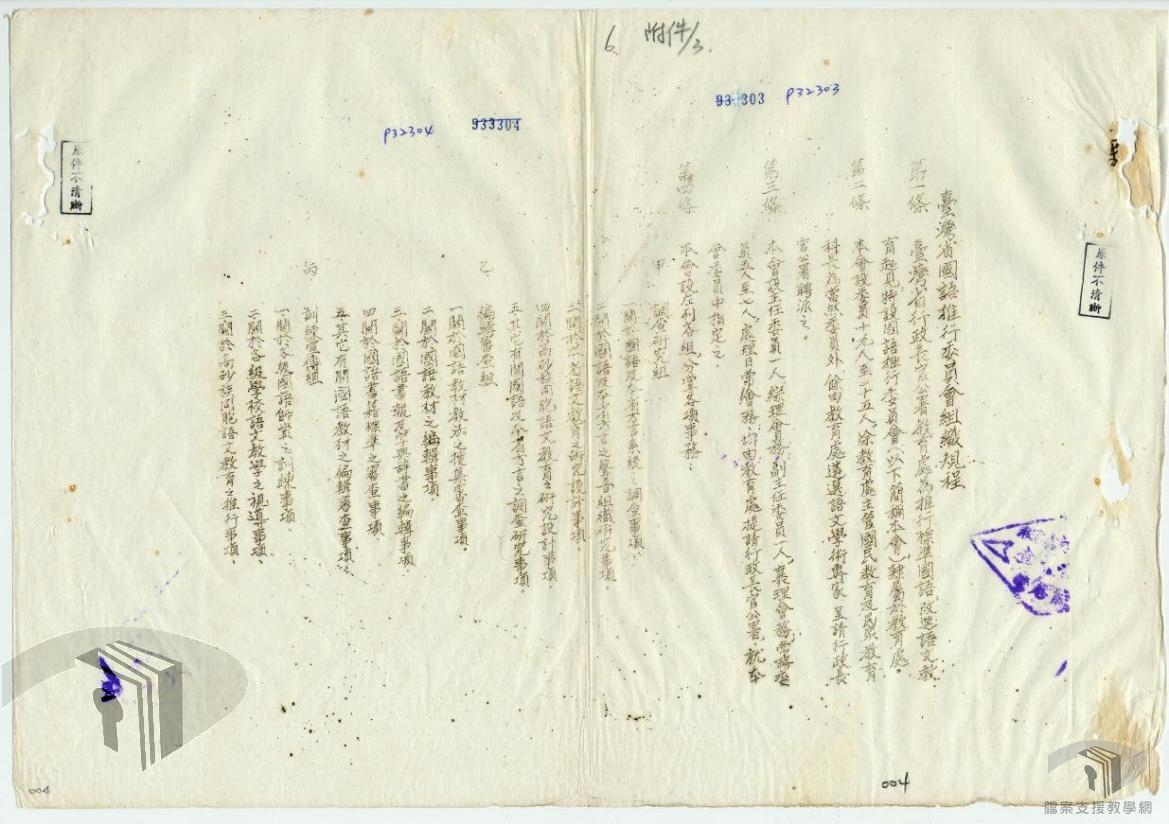 6 附件/3.
93 303 P32303
臺灣省國語推行委員會組織規程
第一條 臺灣省行政長官公署教育處為推行標準國語,改進語文教
育起見特設國語推行委員會(以下簡稱本會)隸屬於教育處。
第二條 本會設委員十九人至二十五人,除教育處主管國民教育及民眾教育
科長為當然委員外,餘由教育處遴選語文學術專家呈請行政長
官公署聘派之。
第三條 本會設主任委員一人,綜理會務,副主任委員一人,襄理會務,常務委
員五人至七人,處理日常會務,均由教育處提請行政長官公署,就本
會委員中指定之。
第四條 本會設左列各組,分掌各項事務:
甲 調查研究組
一關於國語及本省方言系統之調查事項。
二關於國語及本省方言之聲音組織研究事項。
三關於本省語文教育之研究設計事項。
四關於高砂族同胞語文教育之研究設計事項
五其它有關國語及本省方言之調查研究事項。
P32304 933304
乙 編輯審查組
一關於國語教材教法之搜集審查事項。
二關於國語教材之編輯事項。
三關於國語書報及字典辭書之編輯事項。
四關於國語書籍標準之審查事項
五其它有關國語教材之編輯審查事項。
丙 訓練宣傳組
一關於各級國語師資之訓練事項。
二關於各級學校語文教學之視導事項、
三關於高砂族同胞語文教育之推行事項、
原件不清晰
原件不清晰
004
004
檔案支援教學網